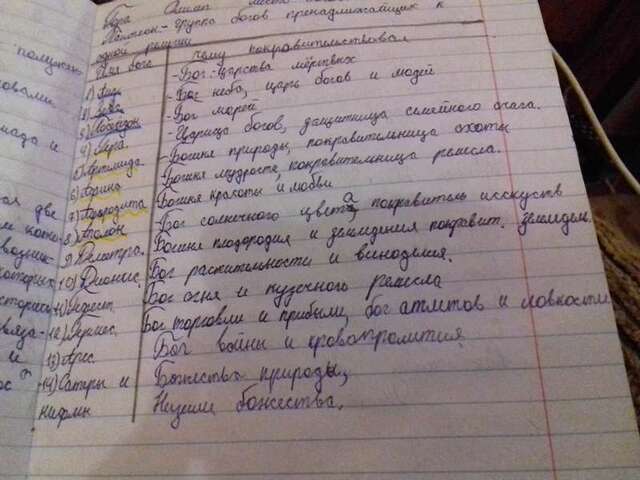 Гора Олимп место
Пантеон - группа богов пренадлижащих к
одной религии
Имя бога чему покравительствовал
1) Аид - Бог царства мёртвых
2) Зевс - Бог неба, царь богов и людей
3) Посейдон - Бог морей
4) Гера - Царица богов, защитница семейного очага.
5) Артемида - Богиня природы, покравительница охоты
6) Афина Богиня мудрости, покравительница ремесла.
7) Афродита Богиня красоты и любви
8) Аполон Бог солнечного цвета, покравитель исскуств
9) Деметра. Богиня плодородия и земледелия покравит. земледел.
10) Дионис. Бог растительности и виноделия.
11) Гефест Бог огня и кузнечного ремесла
12) Гермес Бог торговли и прибыли, бог атлетов и ловкости
13) Арес Бог войны и кровопролития
14) Сатиры и Божества природы,
нифмы Низшие божества.